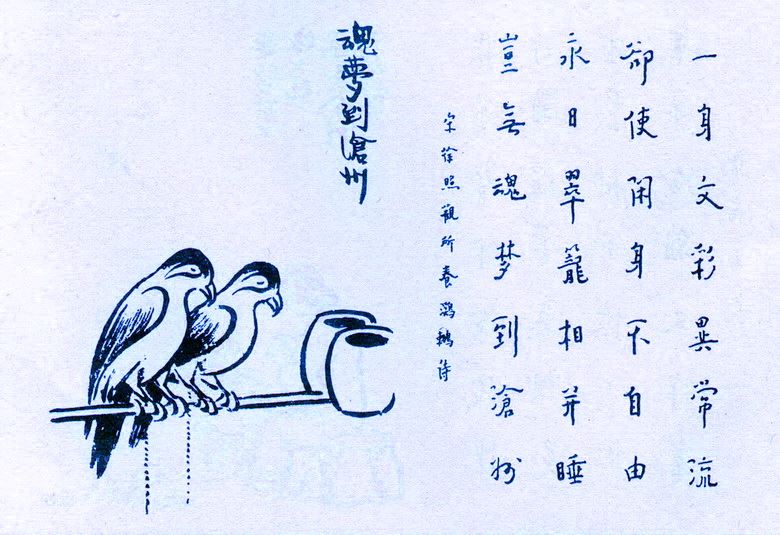 一身文彩異常流
卻使閑身不自由
永日翠籠相并睡
豈無魂梦到滄州
宋徐照觀所養鸂鶒詩
魂夢到滄州